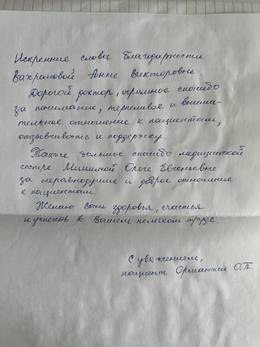 Искренние слова благодарности
Вахрамовой Анне Викторовне
Дорогой доктор, огромное спасибо
за понимание, терпеливое и внима-
тельное отношение к пациентам,
отзывчивость и поддержку.
Также большое спасибо медицинской
сестре Мишиной Ольге Евгеньевне
за неравнодушие и доброе отношение
к пациентам.
Желаю Вам здоровья, счастья
и успехов в Вашем нелегком труде.
С уважением,
пациент О.П.